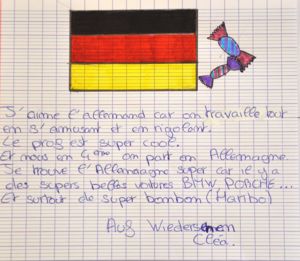 J'aime l'allemand car on travaille tout
en s'amusant et en rigolant.
Le prof est super cool.
Et nous en 4ème on part en Allemagne.
Je trouve l'Allemagne super car il y a
des supers belles voitures BMW, PORCHE...
Et surtout de super bombom (Haribo)
Auf Wiedersehen
Cléa.